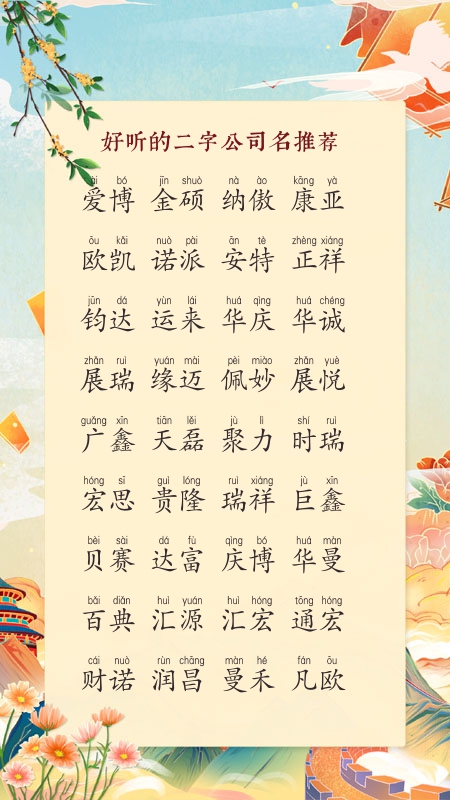 好听的二字公司名推荐
ài bó jīn shuò nà ào kāng yà
爱博 金硕 纳傲 康亚
ōu kǎi nuò pài ān tè zhèng xiáng
欧凯 诺派 安特 正祥
jūn dá yùn lái huá qìng huá chéng
钧达 运来 华庆 华诚
zhǎn ruì yuán mài pèi miào zhǎn yuè
展瑞 缘迈 佩妙 展悦
guǎng xīn tiān lěi jù lì shí ruì
广鑫 天磊 聚力 时瑞
hóng sī guì lóng ruì xiáng jù xīn
宏思 贵隆 瑞祥 巨鑫
bèi sài dá fù qìng bó huá màn
贝赛 达富 庆博 华曼
bǎi diǎn huì yuán huì hóng tōng hóng
百典 汇源 汇宏 通宏
cái nuò rùn chāng màn hé fán ōu
财诺 润昌 曼禾 凡欧